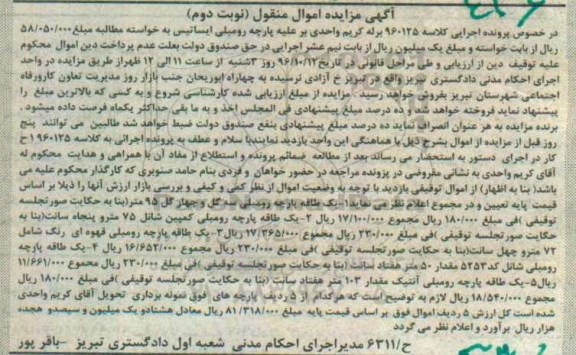 آگهی مزایده اموال منقول (نوبت دوم)
در خصوص پرونده اجرایی کلاسه ۹۶۰۱۲۵ برله کریم واحدی بر علیه پارچه رومبلی ایساتیس به خواسته مطالبه مبلغ ۵۸/۰۵۰/۰۰۰
ریال از بابت خواسته و مبلغ یک میلیون ریال از بابت نیم عشر اجرایی در حق صندوق دولت بعلت عدم پرداخت دین اموال محکوم
علیه توقیف دین از ارزیابی و طی مراحل قانونی در تاریخ ۹۶/۱۰/۱۲ روز ۳شنبه از ساعت ۱۱ الی ۱۲ ظهر از طریق مزایده در واحد
اجرای احکام مدنی دادگستری تبریز واقع در تبریز خ آزادی نرسیده به چهاراه ابوریحان جنب بازار روز مدیریت تعاون کار ورفاه
اجتماعی شهرستان تبریز بفروش خواهد رسید . مزایده از مبلغ ارزیابی شده کارشناسی شروع و به کسی که بالاترین مبلغ را
پیشنهاد نماید فروخته خواهد شد و ده درصد مبلغ پیشنهادی فی المجلس اخذ و به ما بقی حداکثر یکماه فرصت داده میشود .
برنده مزایده به هر عنوان انصراف نماید ده درصد مبلغ پیشنهادی بنفع صندوق دولت ضبط خواهد شد طالبین می توانند پنج
روز قبل از مزایده از اموال بشرح ذیل با هماهنگی این واحد بازدید نمایند با سلام و عطف به پرونده اجرائی به کلاسه ۹۶۰۱۲۵ ا ح
کار در اجرای دستور به استحضار می رساند بعد از مطالعه ضمائم پرونده و استطلاع از مفاد آن با همراهی و هدایت محکوم له
آقای کریم واحدی به نشانی مفروضی در پرونده مراجعه در حضور خواهان و فردی بنام حامد صنوبری که کارگذار محکوم علیه می
باشد( بنا به اظهار) از اموال توقیفی بازدید با توجه به وضعیت اموال از نظر کمی و کیفی و بررسی بازار ارزش آنها را ذیلا بر اساس
قیمت پایه تعیین و در مجموع اعلام نظر می نماید۱-یک طاقه پارچه رومبلی سه گل و چهار گل ۹۵ متر(بنا به حکایت صورتجلسه
توقیفی )فی مبلغ ۱۸۰/۰۰۰ ریال مجموع ۱۷/۱۰۰/۰۰۰ ریال ۲-یک طاقه پارچه رومبلی کمپین شانل ۷۵ مترو پنجاه سانت(بنا به
حکایت صورتجلسه توقیفی )فی مبلغ ۲۳۰/۰۰۰ ریال مجموع ۱۷/۳۶۵/۰۰۰ ریال۳-یک طاقه پارچه رومبلی قهوه ای رنگ شامل
۷۲ مترو چهل سانت(بنا به حکایت صورتجلسه توقیفی )فی مبلغ ۲۳۰/۰۰۰ ریال مجموع ۱۶/۶۵۲/۰۰۰ ریال ۴-یک طاقه پارچه
رومبلی شانل کد۵۲۵۳ مقدار ۵۰ متر هفتاد سانت (بنا به حکایت صورتجلسه توقیفی )فی مبلغ ۲۳۰/۰۰۰ ریال مجموع ۱۱/۶۶۱/۰۰۰
ریال۵-یک طاقه پارچه رومبلی آنتیک مقدار ۱۰۳ متر هفتاد سانت (بنا به حکایت صورتجلسه توقیفی )فی مبلغ ۱۸۰/۰۰۰ ریال
مجموع ۱۸/۵۴۰/۰۰۰ ریال لازم به توضیح است که هرکدام از ۵ ردیف پارچه های فوق نمونه برداری تحویل آقای کریم واحدی
شده است کل ارزش ۵ ردیف اموال فوق بر اساس قیمت پایه مبلغ ۸۱/۳۱۸/۰۰۰ ریال معادل هشتادو یک میلیون و سیصدو هجده
هزار ریال برآورد و اعلام نظر می گردد
ح/۶۳۱۱ مدیراجرای احکام مدنی شعبه اول دادگستری تبریز -باقر پور